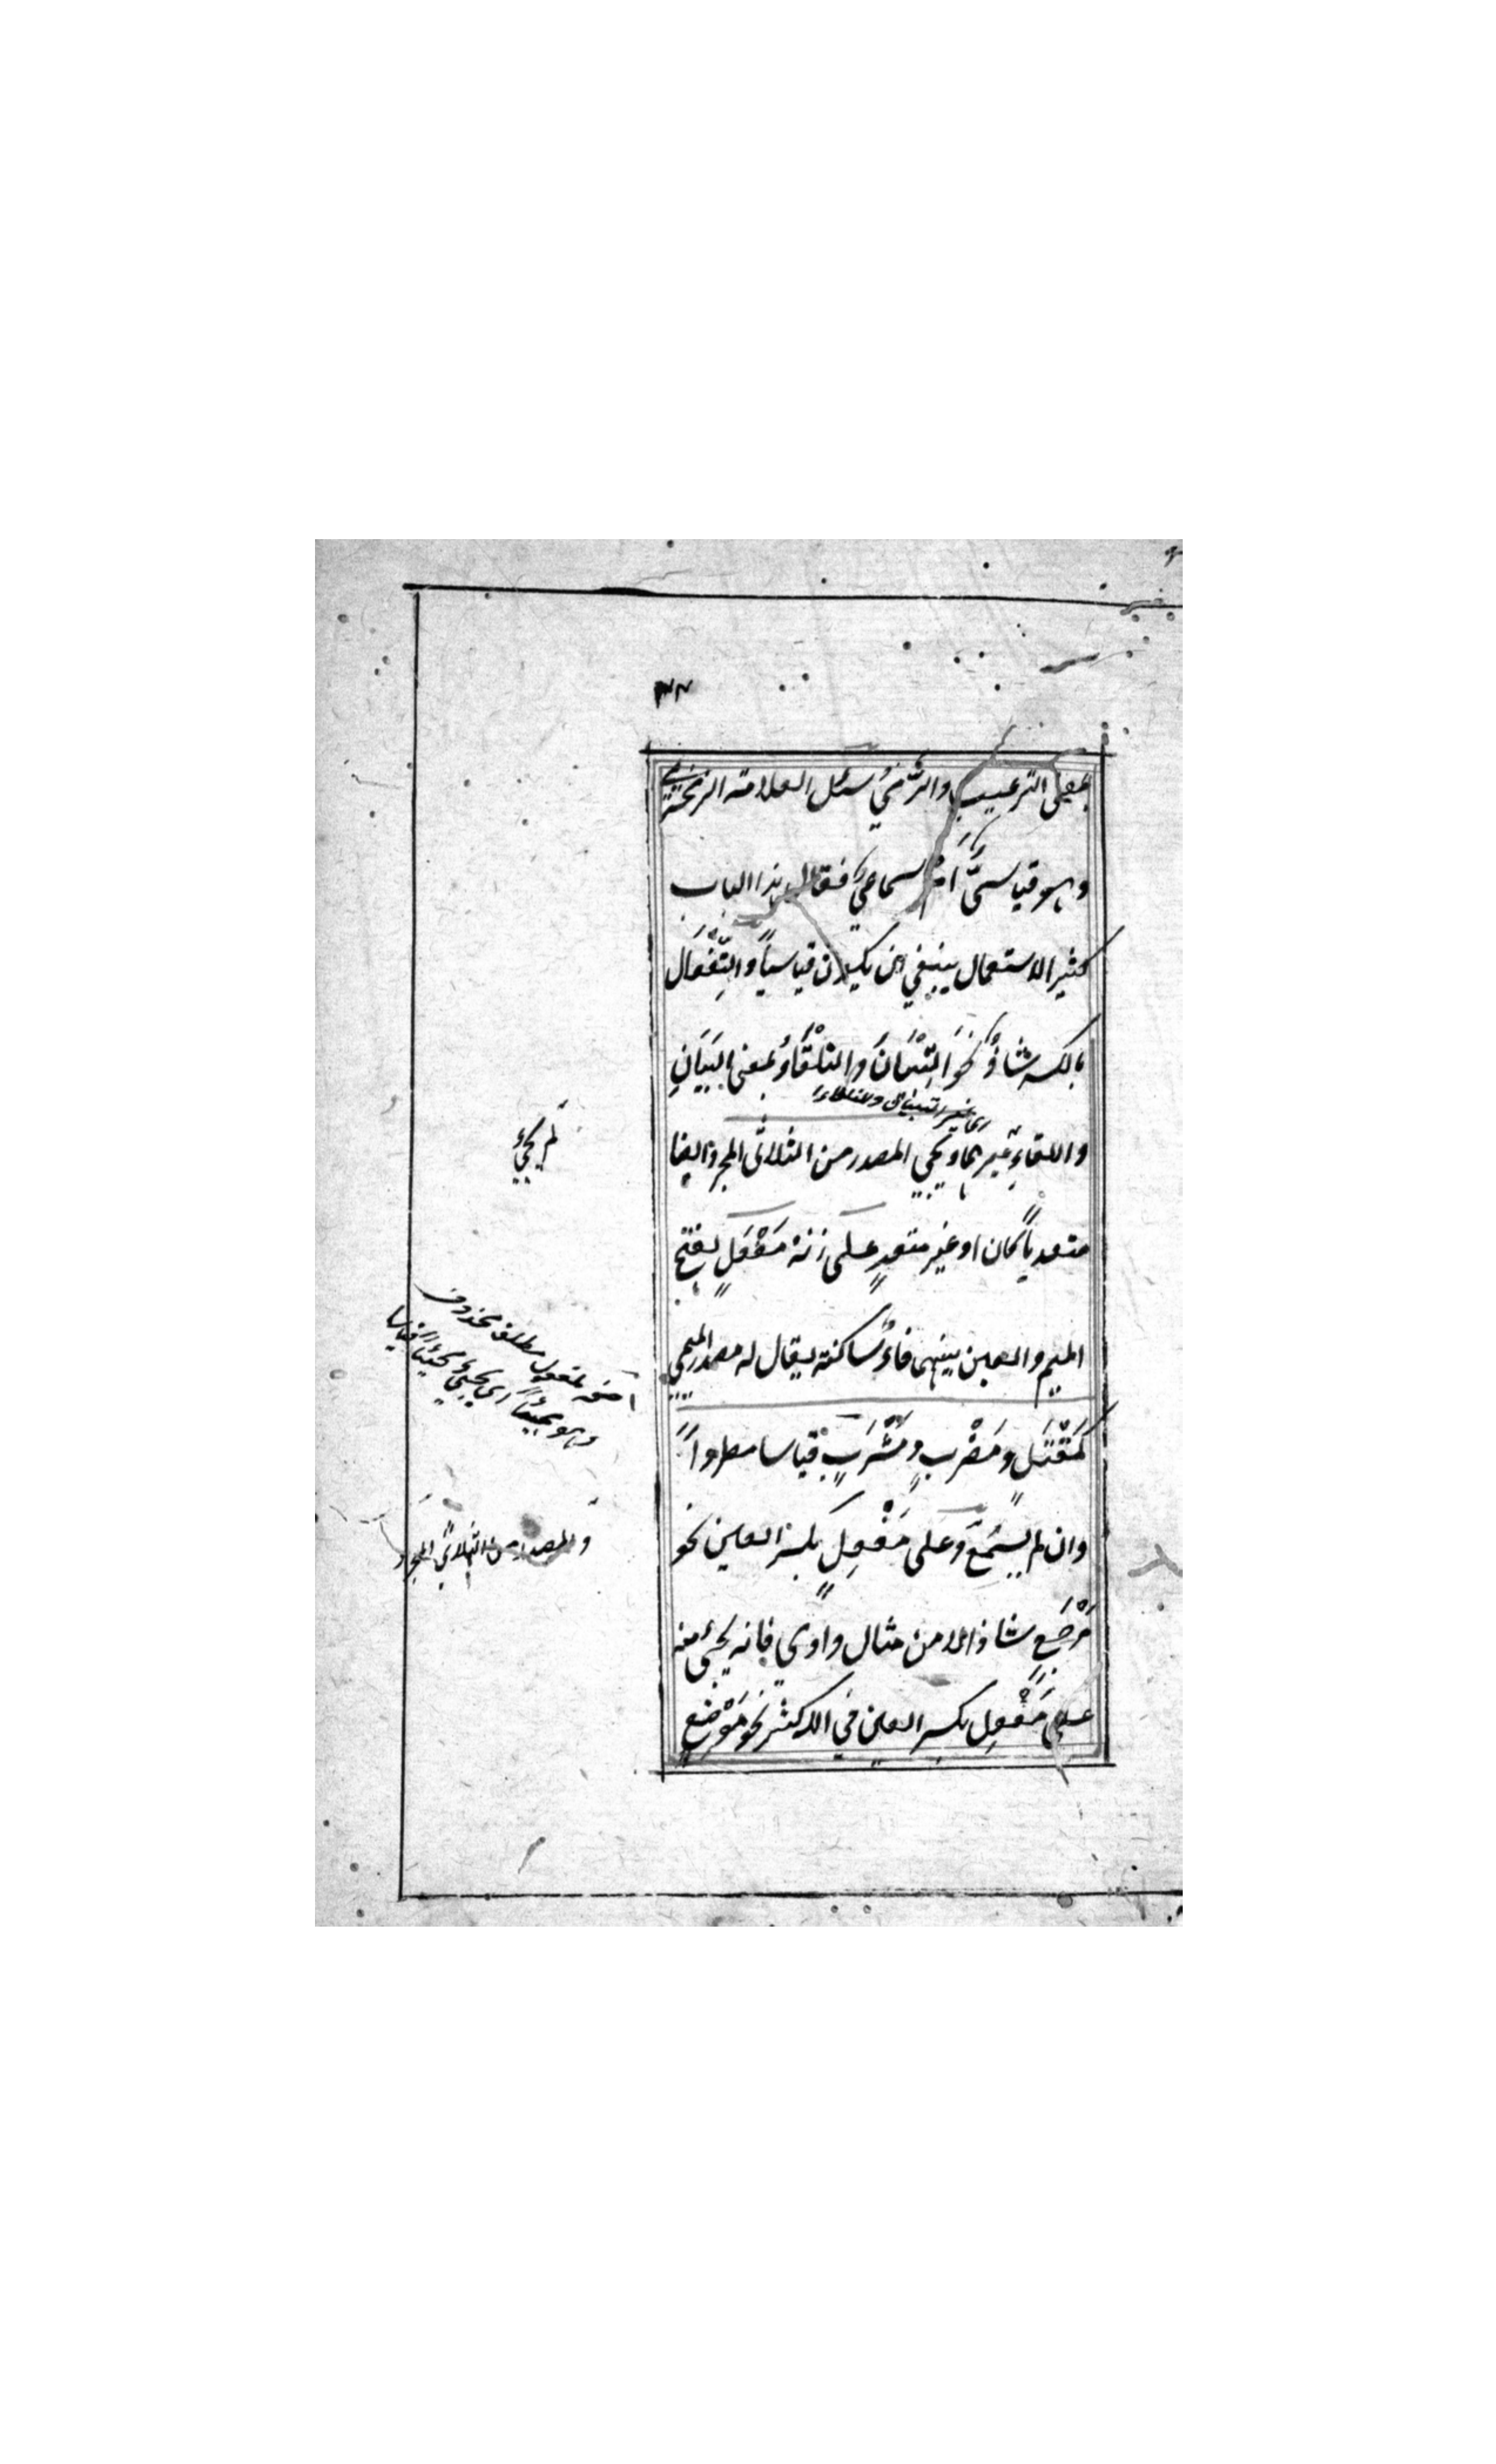 بمعنى الترعيب والترمي سئل العلامة الزمخشري
وهو قياسيٌّ اَمْ سماعيٌّ فقال هذا الباب
كثير الاستعمال ينبغي ان يكون قياسياً والتِّفْعَال
بالكسر شاذٌ نحوَ التِّبْيَانَ والتلْقَاءُ بمعنى البَيَانِ
اى غير التبيان والتلقاء
واللقاءِ غيرهما ويجيئ المصدر من الثلاثى المجرد ايضا
متعدياً كان او غير متعدٍ على زنة مَفْعَلٍ بفتح
الميم والعين بينهما فاءٌ ساكنة يقال له مصدر الميمي
كَمَقْتَلٍ ومَضْرَبٍ ومَشْرَبٍ قياسا مطرداً
وان لم يُسْمَعْ وعَلى مَفْعِلٍ بكسر العين نحو
مَرْجِعٍ شاذ الا من مثال واوي فانه يجيئ منه
على مَفْعِلٍ بكسر العين في الاكثر نحو مَوْضِعٍ
لم يجيئ
صفة لمفعول مطلق محذوف
وهو مجيئاً اى يجيئ مجيئاً قياسا
والمصدر من الثلاثي المجرد